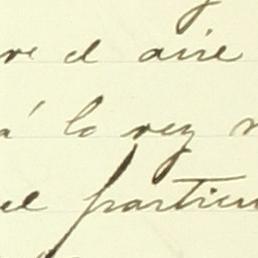 re el aire
á lo rey
el particu